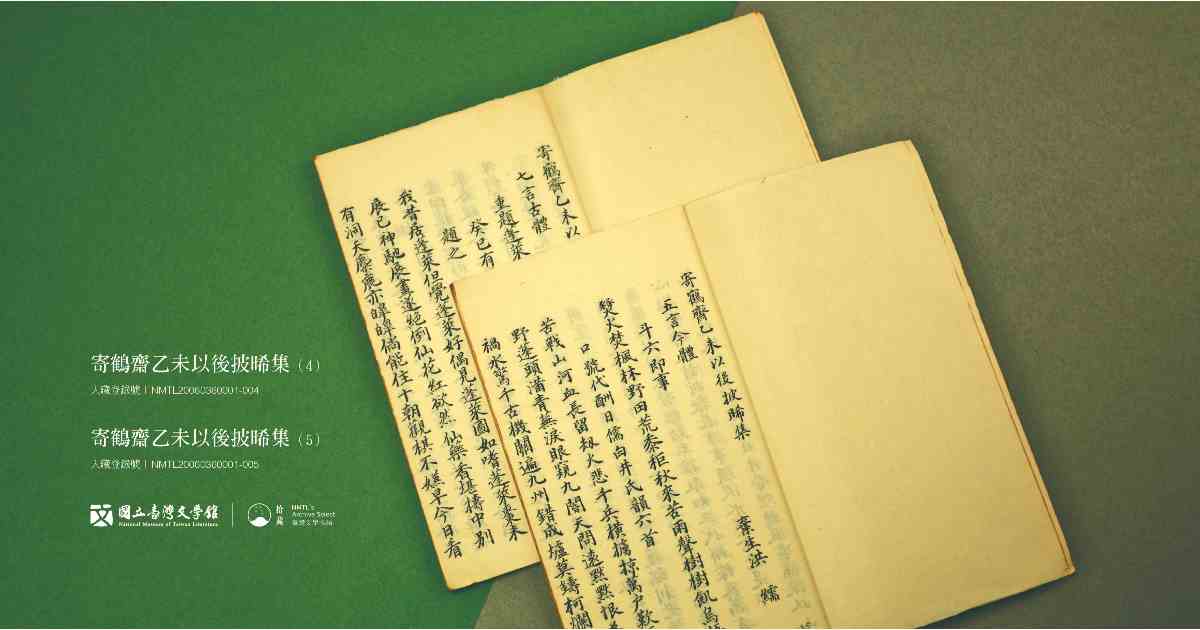 寄鶴齋乙未以後披晞集（4）
入藏登錄號｜NMTL20060360001-004
寄鶴齋乙未以後披晞集（5）
入藏登錄號｜NMTL20060360001-005
國立臺灣文學館
National Museum of Taiwan Literature
拾藏
NMTL's
Archive Select
臺灣文學物語
寄鶴齊乙未以
七言古體
重題蓬萊
癸巳有
題之
我昔居蓬萊但覺蓬萊好偶見蓬萊圖如嗜蓬萊棗未
展已神馳展畫遂絕倒仙花紅欲然仙樂香堪擣中別
有洞天麋鹿亦皞皞倘能住十朝觀棋不嫌早今日看
寄鶴齊乙未以後披晞集
葉生洪 繻
五言今體
斗六即事
燹火焚楓林野田荒黍秬秋來苦雨聲樹樹飢烏
口號代酬日儒白井氏韻六首
苦戰山河血長留劫火悲千兵橫擄掠萬户歎
野蓬頭滿青無淚眼窺九閽天問遠黯黯恨
禍水驚千古機關遍九州錯成墟莫鑄柯爛